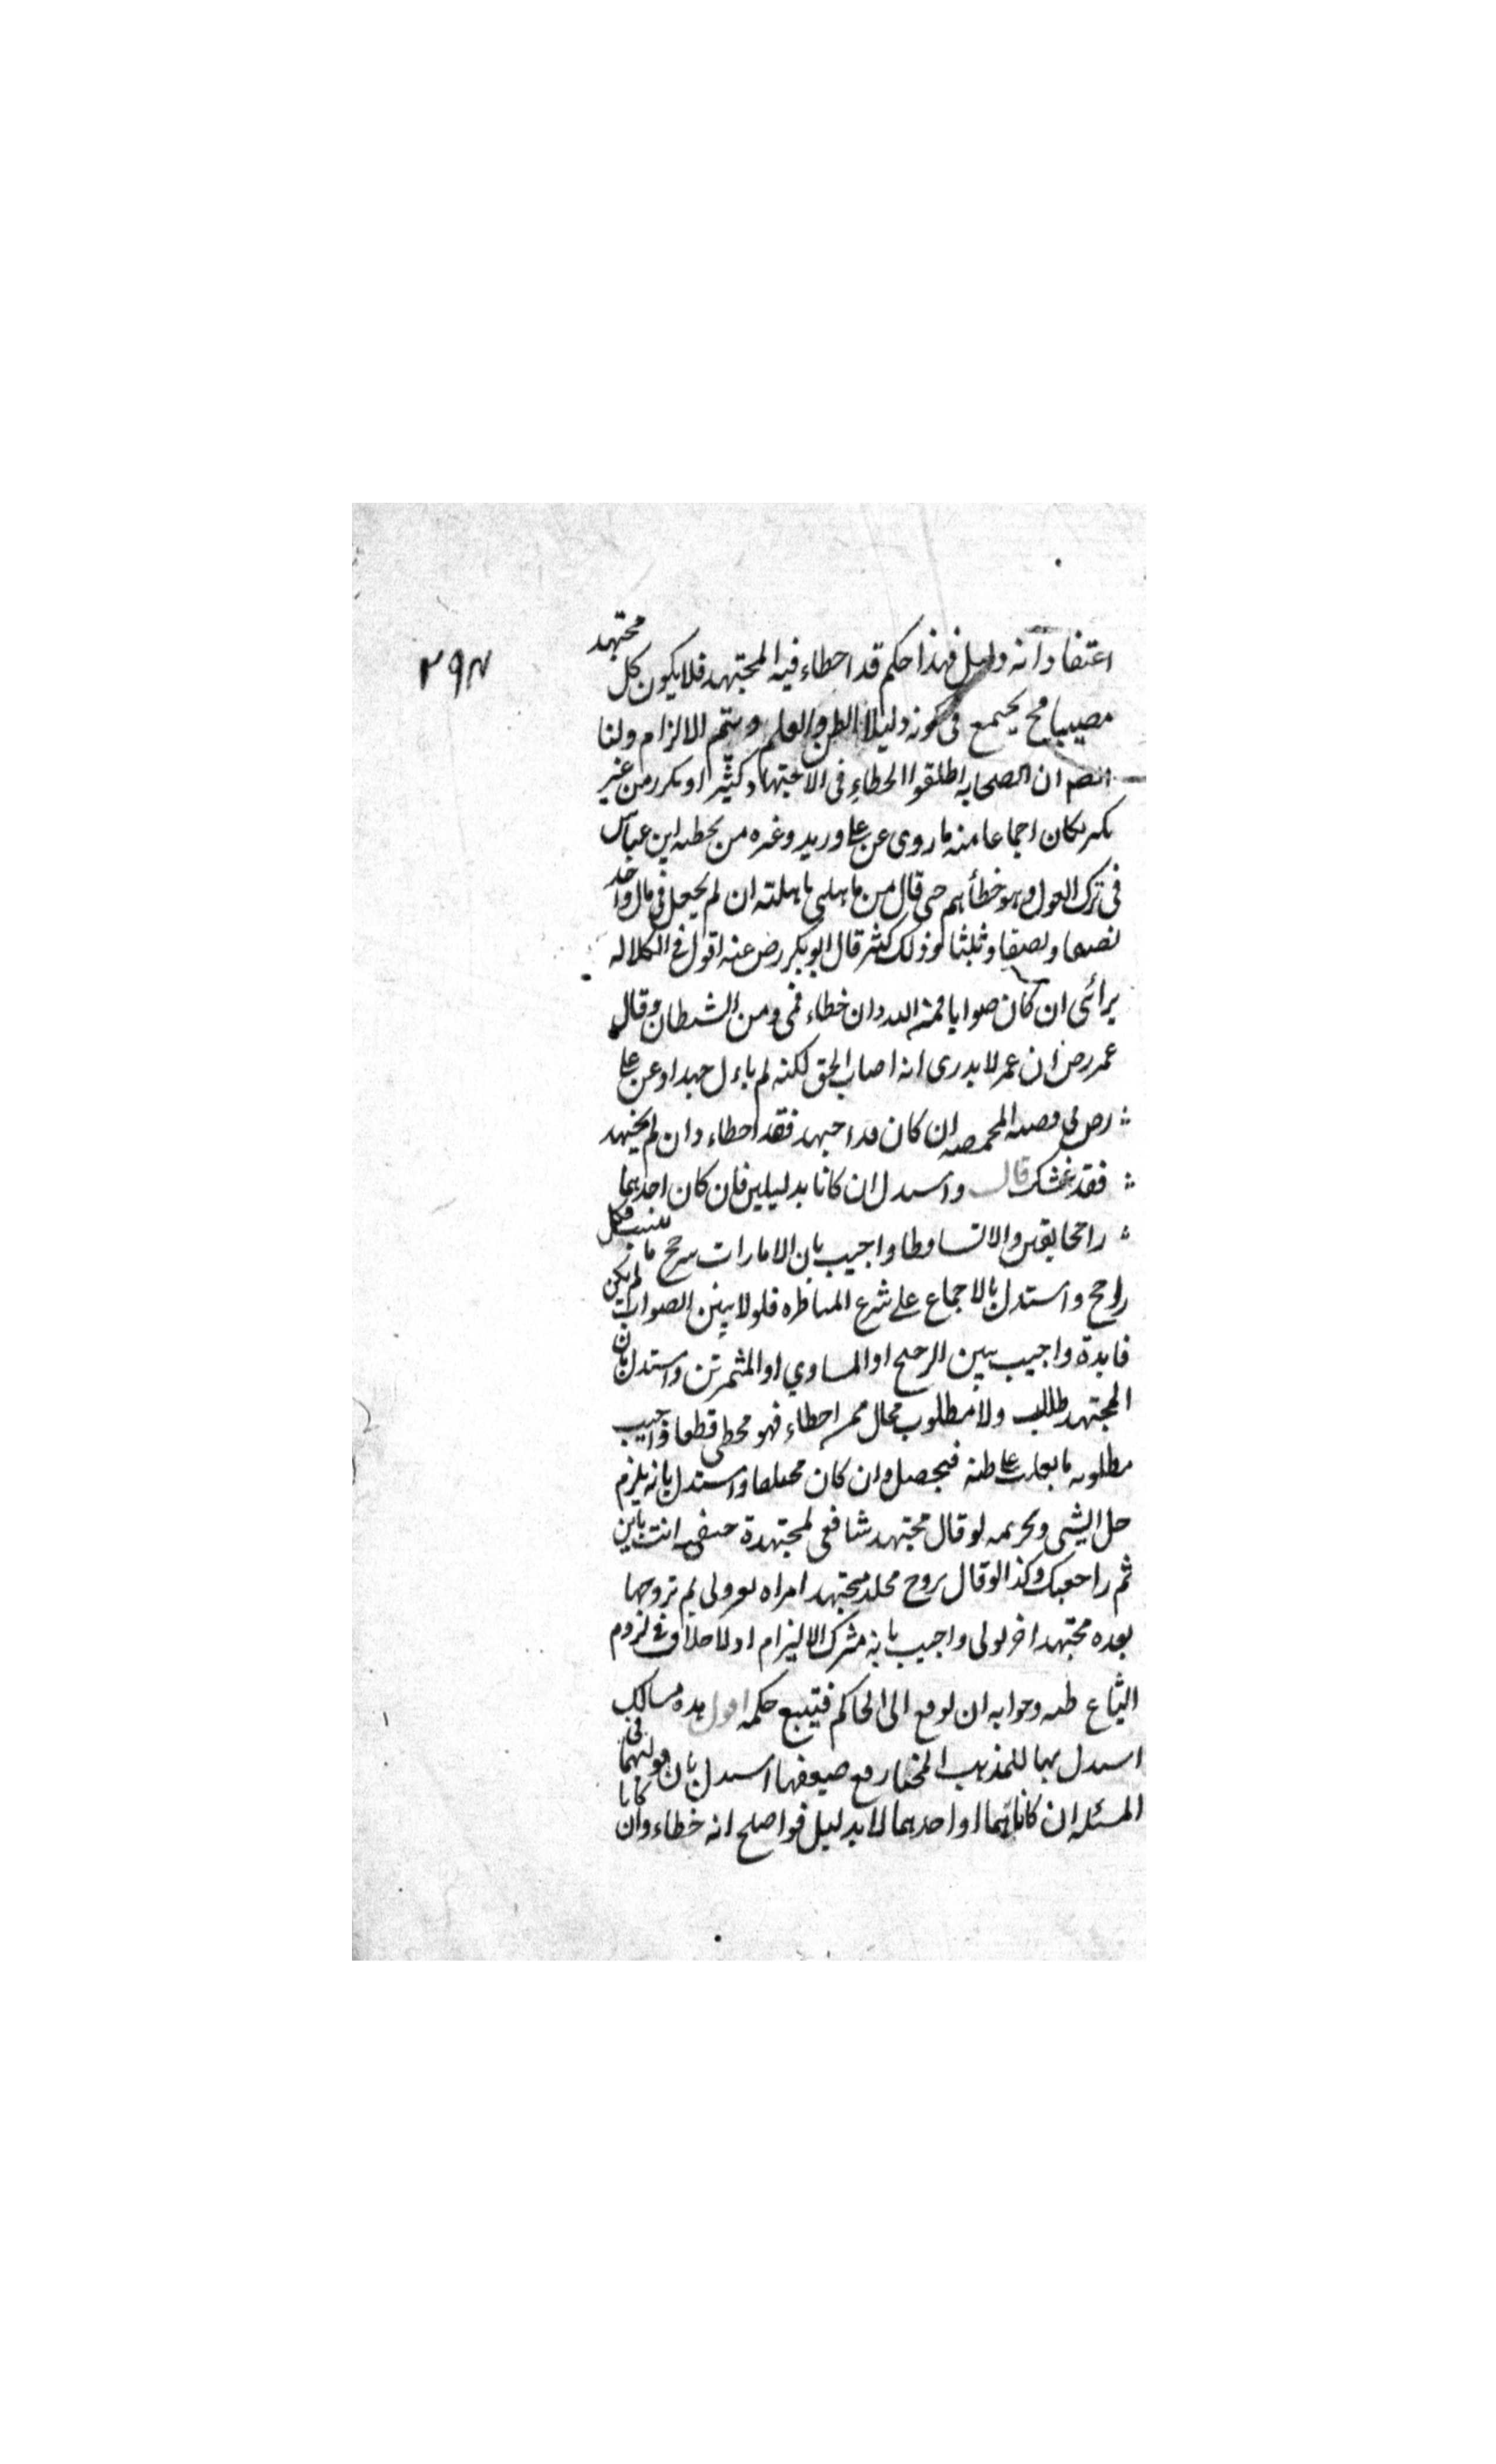 ٢٩٤
اعتقاد انه دليل فهذا حكم قد اخطاء فيه المجتهد فلا يكون كل مجتهد
مصيبا مح يجتمع في كونه دليلا الظن والعلم ويتم الالزام ولنا
ايضا ان الصحابه اطلقوا الخطاء في الاجتهاد كثيرا وتكرر من غير
نكير فكان اجماعا منه ما روى عن علي وزيد وغيره من تخطئه ابن عباس
في ترك العول وهو خطأهم حتى قال من باهلنى باهلته ان لم يجعل في مال واحد
نصفا ونصفا وثلثا وذلك كثير قال ابو بكر رض عنه اقول في الكلاله
برائى ان كان صوابا فمن الله وان خطاء فمنى ومن الشيطان وقال
عمر رض ان عمر لا يدرى انه اصاب الحق لكنه لم يال جهدا وعن علي
رض في قصه المجهضه ان كان قد اجتهد فقد اخطاء وان لم يجتهد
فقد غشك قال واستدل ان كانا بدليلين فان كان احدهما
راجحا تعين والا تساقطا واجيب بان الامارات ترجح بالنسب فكل
راجح واستدل بالاجماع على شرع المناظره فلولا تبين الصواب لم يكن
فايدة واجيب تبين الرجيح او المساوي او التمرين واستدل بان
المجتهد طالب ولا مطلوب محال فمن اخطاء فهو مخطى قطعا واجيب
مطلوبه ما يغلب على ظنه فيحصل وان كان مختلفا واستدل بانه يلزم
حل الشى وتحريمه لو قال مجتهد شافعى لمجتهدة حنفيه انت باين
ثم راجعتك وكذا لو قال تزوج مجتهد امراه بغير ولى ثم تزوجها
بعده مجتهد اخر بولى واجيب بانه مشترك الالزام اذ لا خلاف في لزوم
اتباع ظنه وجوابه ان يرفع الى الحاكم فيتبع حكمه اقول هذه مسالك
استدل بها للمذهب المختار مع ضعفها استدل بان قوليهما في
المسئله ان كانا هما او احدهما لا بدليل فواضح انه خطاء وان كانا